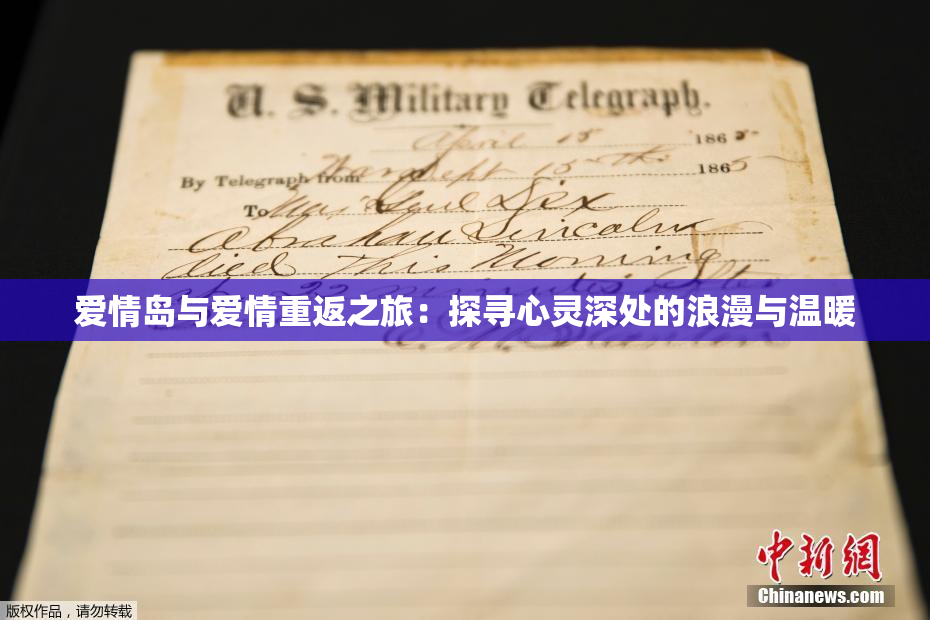 U. S. Military Telegraph.
April 15 1865
By Telegraph from War Dept 15th 1865
To Maj Genl Dix
Abraham Lincoln
died This Morning
22 minutes after
爱情岛与爱情重返之旅：探寻心灵深处的浪漫与温暖
E. M. Stanton
中新網
Chinanews.com
版权作品，请勿转载